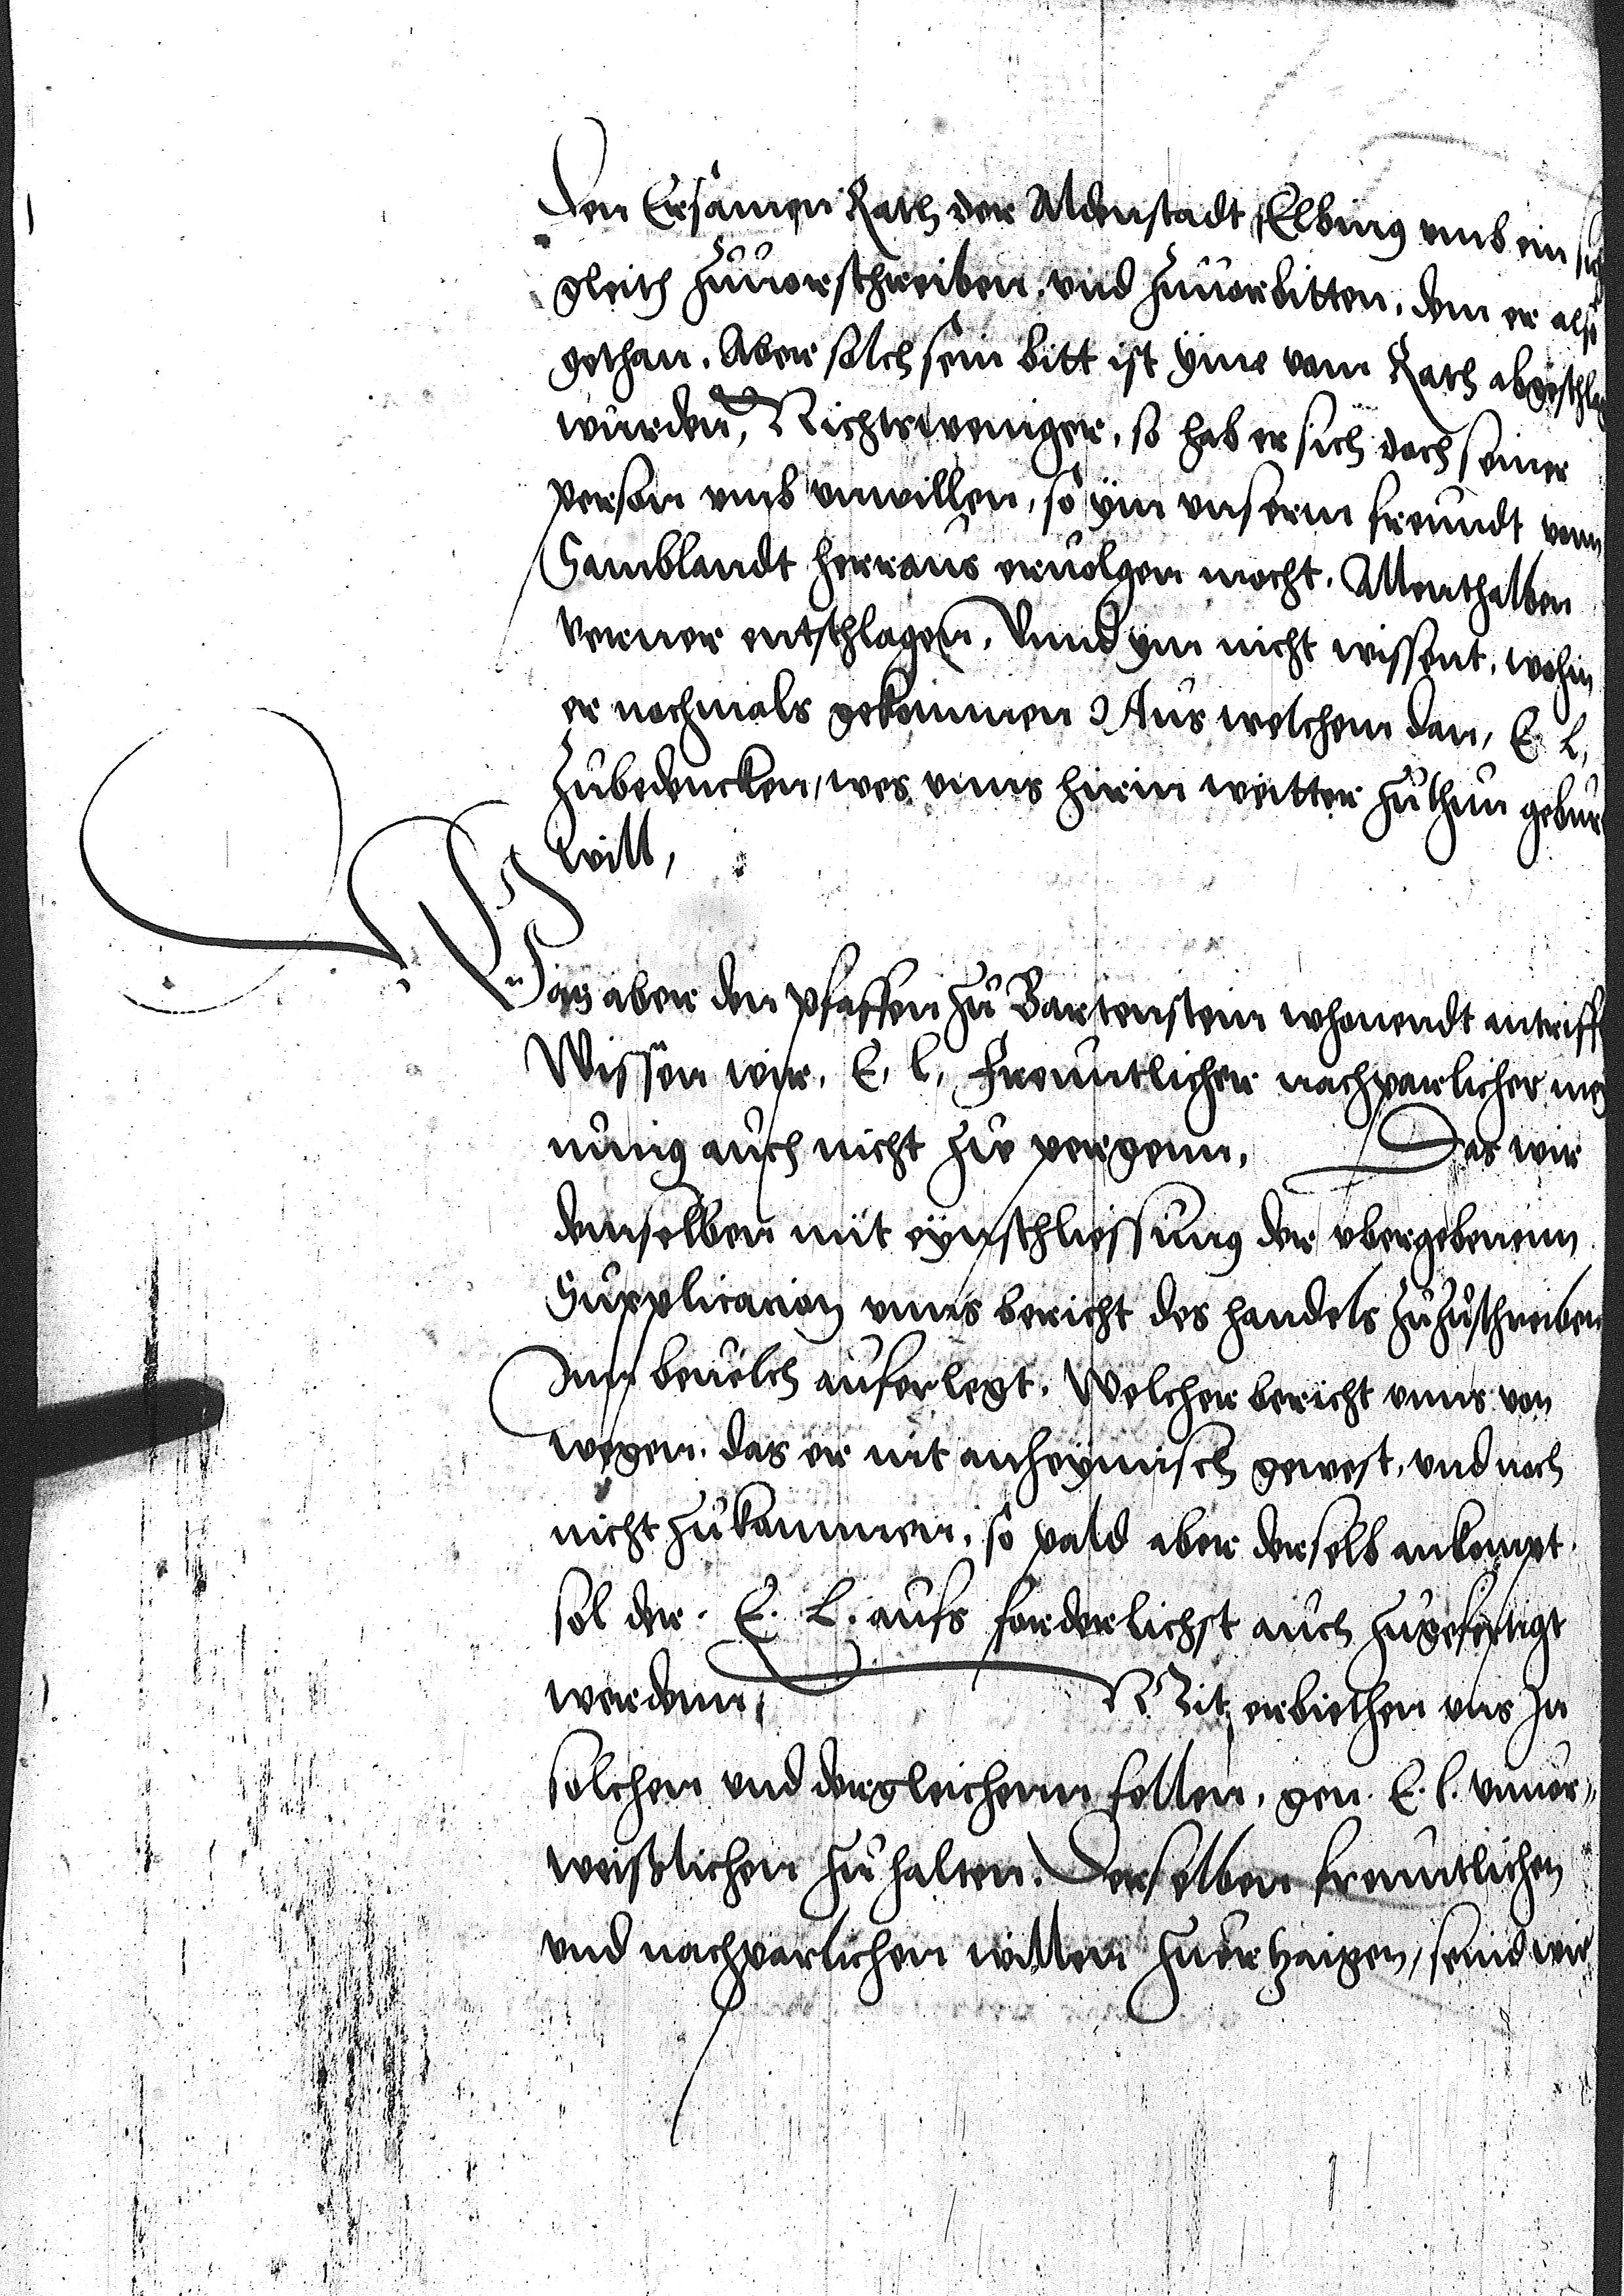 den Ersamen Rath der Aldenstadt Elbing vmb ein
gleith zuuorschreiben, vnd zuuorbitten, dem er also
gethan. Aber solch sein bitt ist yme vom Rath
wurden, Nichtsweniger, so hab er sich doch seiner
person vmb vnwillen, so ym vnserm freundt vom
Samblandt herraus eruolgen mocht. Allenthalben
verner entschlagen, Vnnd ym nicht wissent, wohin
er nochmals gekommen Aus welchem dan, E. L.
zubedencken, wes vnns hirin weitter zuthun
will,
Das aber den pfaffen zu Bartenstein whonendt
Wissen wir, E. L. freuntlicher nachparlicher
nung auch nicht zue pergenn, Das wir
demselben mit eynschliessung der vbergebenenn
Supplicacion vnns bericht des handels zuzuschreiben
Inn beuelch auferlegt. Welcher bericht vnns von
wegen, das er nit anheymisch gewest, vnd noch
nicht zukommen, so pald aber derselb ankompt.
sol der. E. L. aufs forderlichst auch zugefertigt
werdenn, Mit erbiethen vns In
solchen vnd dergleichenn fellen, gen. E. L. vnuor„
weißlichen zuhalten. Derselben freuntlichen
vnd nachparlichen willen zuertzaigen, seind wir